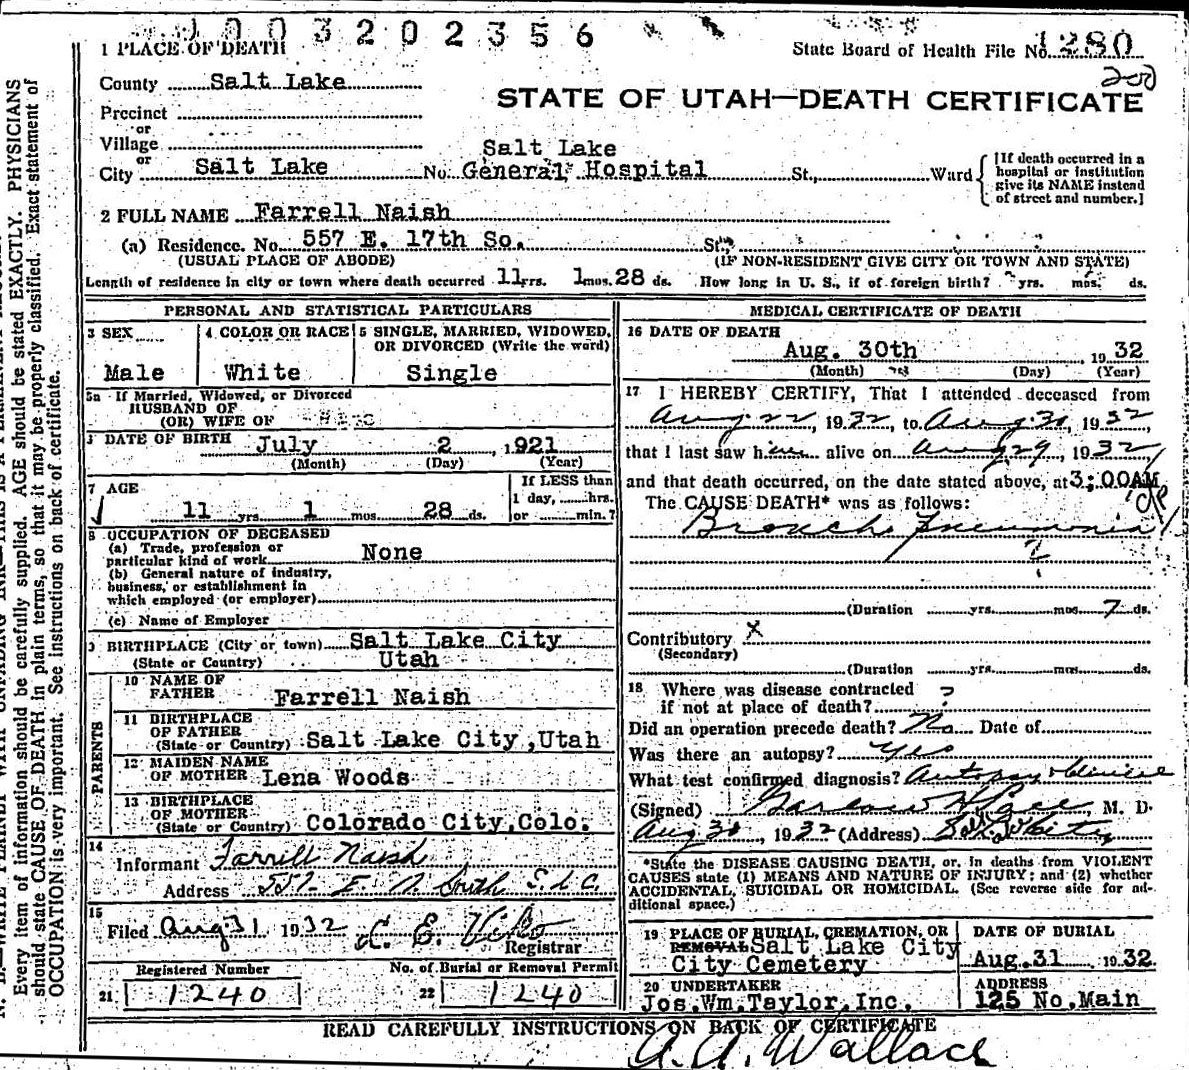 1003202356
1 PLACE OF DEATH
State Board of Health File No. 1280
200
County Salt Lake
STATE OF UTAH—DEATH CERTIFICATE
Precinct
or
Village
or
City Salt Lake No. Salt Lake General Hospital St., Ward
[If death occurred in a hospital or institution give its NAME instead of street and number.]
2 FULL NAME Farrell Naish
(a) Residence. No. 557 E. 17th So. St.,
(USUAL PLACE OF ABODE) (IF NON-RESIDENT GIVE CITY OR TOWN AND STATE)
Length of residence in city or town where death occurred 11 yrs. 1 mos. 28 ds. How long in U. S., if of foreign birth? yrs. mos. ds.
PERSONAL AND STATISTICAL PARTICULARS
3 SEX
Male
4 COLOR OR RACE
White
5 SINGLE, MARRIED, WIDOWED, OR DIVORCED (Write the word)
Single
5a If Married, Widowed, or Divorced
HUSBAND OF
(OR) WIFE OF
DATE OF BIRTH July 2, 1921
(Month) (Day) (Year)
7 AGE
11 yrs 1 mos 28 ds.
If LESS than
1 day, hrs.
or min.?
8 OCCUPATION OF DECEASED
(a) Trade, profession or
particular kind of work None
(b) General nature of industry,
business, or establishment in
which employed (or employer)
(c) Name of Employer
9 BIRTHPLACE (City or town) Salt Lake City
(State or Country) Utah
PARENTS
10 NAME OF
FATHER Farrell Naish
11 BIRTHPLACE
OF FATHER
(State or Country) Salt Lake City, Utah
12 MAIDEN NAME
OF MOTHER Lena Woods
13 BIRTHPLACE
OF MOTHER
(State or Country) Colorado City, Colo.
14
Informant Farrell Naish
Address 557 E South S.L.C.
15
Filed Aug 31 1932
Registrar
Registered Number
21 1240
No. of Burial or Removal Permit
22 1240
MEDICAL CERTIFICATE OF DEATH
16 DATE OF DEATH
Aug. 30th, 1932
(Month) (Day) (Year)
17 I HEREBY CERTIFY, That I attended deceased from
Aug 22, 1932, to Aug 30, 1932
that I last saw him alive on Aug 29, 1932,
and that death occurred, on the date stated above, at 3:00AM
The CAUSE DEATH* was as follows:
Broncho Pneumonia
(Duration yrs. mos 7 ds.
Contributory X
(Secondary)
(Duration yrs. mos ds.
18 Where was disease contracted
if not at place of death? ?
Did an operation precede death? No Date of
Was there an autopsy? yes
What test confirmed diagnosis? Autopsy & clinical
(Signed) M. D.
Aug 30, 1932 (Address)
*State the DISEASE CAUSING DEATH, or, in deaths from VIOLENT
CAUSES state (1) MEANS AND NATURE OF INJURY; and (2) whether
ACCIDENTAL, SUICIDAL OR HOMICIDAL. (See reverse side for ad-
ditional space.)
19 PLACE OF BURIAL, CREMATION, OR
REMOVAL Salt Lake City
City Cemetery
DATE OF BURIAL
Aug. 31 1932.
20 UNDERTAKER
Jos. Wm. Taylor, Inc.
ADDRESS
125 No. Main
READ CAREFULLY INSTRUCTIONS ON BACK OF CERTIFICATE
A. A. Wallace
Every item of information should be carefully supplied. AGE should be stated EXACTLY. PHYSICIANS
should state CAUSE OF DEATH in plain terms, so that it may be properly classified. Exact statement of
OCCUPATION is very important. See instructions on back of certificate.